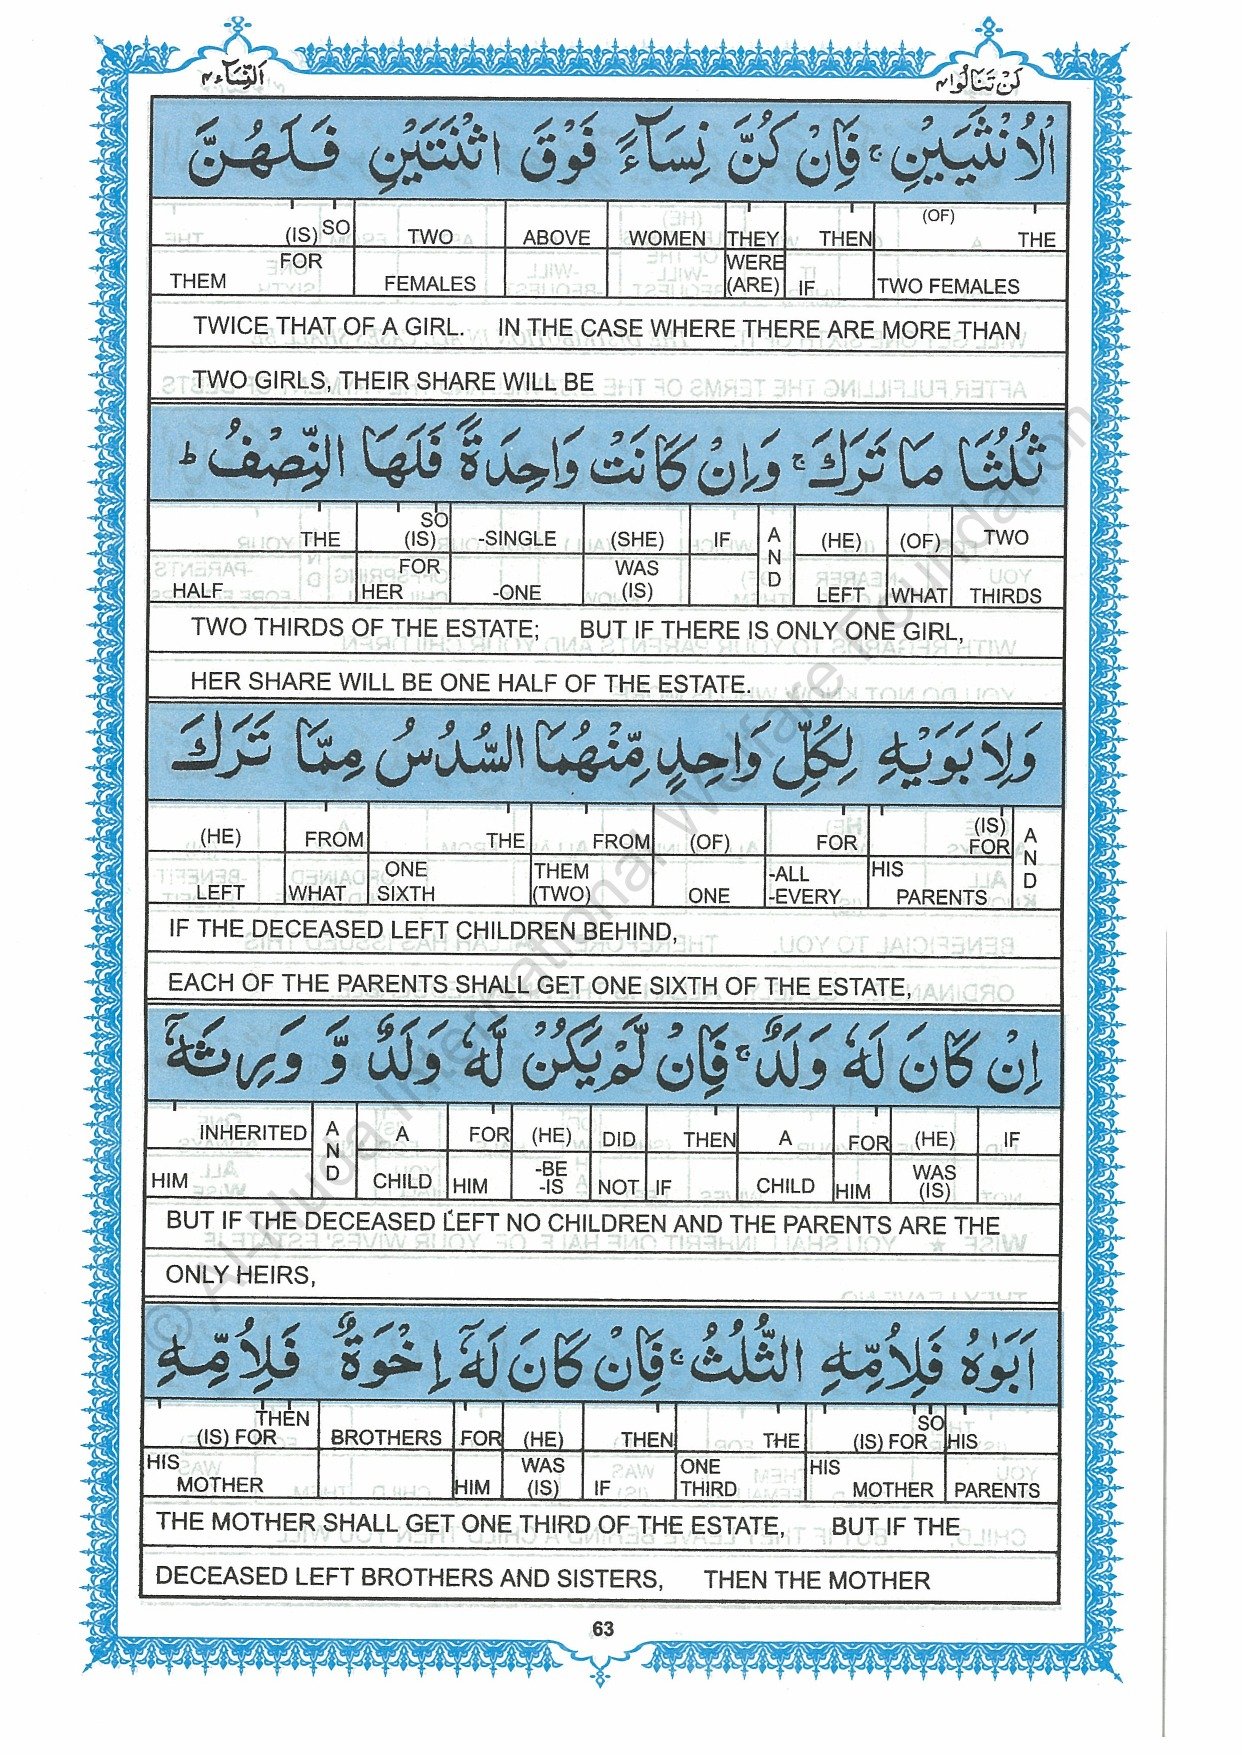 النساء ٤
لن تنالوا ٤
الْاُنْثَيَيْنِ ۚ فَاِنْ كُنَّ نِسَآءً فَوْقَ اثْنَتَيْنِ فَلَهُنَّ
(IS) SO TWO ABOVE WOMEN THEY THEN (OF) THE
THEM FOR FEMALES WERE (ARE) IF TWO FEMALES
TWICE THAT OF A GIRL. IN THE CASE WHERE THERE ARE MORE THAN
TWO GIRLS, THEIR SHARE WILL BE
ثُلُثَا مَا تَرَكَ ۚ وَاِنْ كَانَتْ وَاحِدَةً فَلَهَا النِّصْفُ ؕ
THE SO (IS) -SINGLE (SHE) IF AND (HE) (OF) TWO
HALF FOR HER -ONE WAS (IS) LEFT WHAT THIRDS
TWO THIRDS OF THE ESTATE; BUT IF THERE IS ONLY ONE GIRL,
HER SHARE WILL BE ONE HALF OF THE ESTATE.
وَلِاَبَوَيْهِ لِكُلِّ وَاحِدٍ مِّنْهُمَا السُّدُسُ مِمَّا تَرَكَ
(HE) FROM THE FROM (OF) FOR (IS) FOR AND
LEFT WHAT ONE SIXTH THEM (TWO) ONE -ALL -EVERY HIS PARENTS
IF THE DECEASED LEFT CHILDREN BEHIND,
EACH OF THE PARENTS SHALL GET ONE SIXTH OF THE ESTATE,
اِنْ كَانَ لَهٗ وَلَدٌ ۚ فَاِنْ لَّمْ يَكُنْ لَّهٗ وَلَدٌ وَّ وَرِثَهٗۤ
INHERITED AND A FOR (HE) DID THEN A FOR (HE) IF
HIM CHILD HIM -BE -IS NOT IF CHILD HIM WAS (IS)
BUT IF THE DECEASED LEFT NO CHILDREN AND THE PARENTS ARE THE
ONLY HEIRS,
اَبَوٰهُ فَلِاُمِّهِ الثُّلُثُ ۚ فَاِنْ كَانَ لَهٗۤ اِخْوَةٌ فَلِاُمِّهِ
THEN (IS) FOR BROTHERS FOR (HE) THEN THE SO (IS) FOR HIS
HIS MOTHER HIM WAS (IS) IF ONE THIRD HIS MOTHER PARENTS
THE MOTHER SHALL GET ONE THIRD OF THE ESTATE, BUT IF THE
DECEASED LEFT BROTHERS AND SISTERS, THEN THE MOTHER
63
© Al-Huda International Welfare Foundation